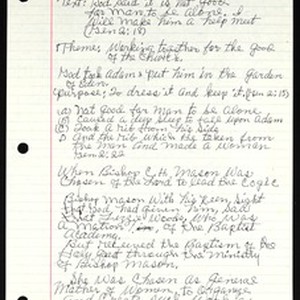 Text: God said it is not good
for man to be alone. I
will make him a help meet
(Gen 2:18)
Theme: Working together for the good
of the Church.
God took Adam & put him in the Garden
of Eden.
(purpose; To dress it and keep it, (Gen 2:15)
(a) Not good for Man to be Alone
(B) Caused a deep sleep to fall upon Adam
(C) Took A rib from his side
D And the rib which the taken from
the Man And made a Woman
Gen 2:22
When Bishop C.H. Mason Was
Chosen of the Lord to lead the COGIC
Bishop Mason With his keen, sight
that God had given him, said
that Lizzie Woods, Who Was
A Matron, of the Baptist
Academy.
But received the Baptism of the
Holy Ghost through the Ministry
of Bishop Mason.
She Was Chosen as General
Mother of Women, to Organize